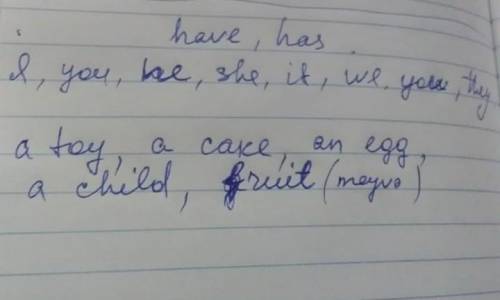 have, has.
I, you, he, she, it, we, you, they
a toy, a cake, an egg,
a child, fruit (meyve)